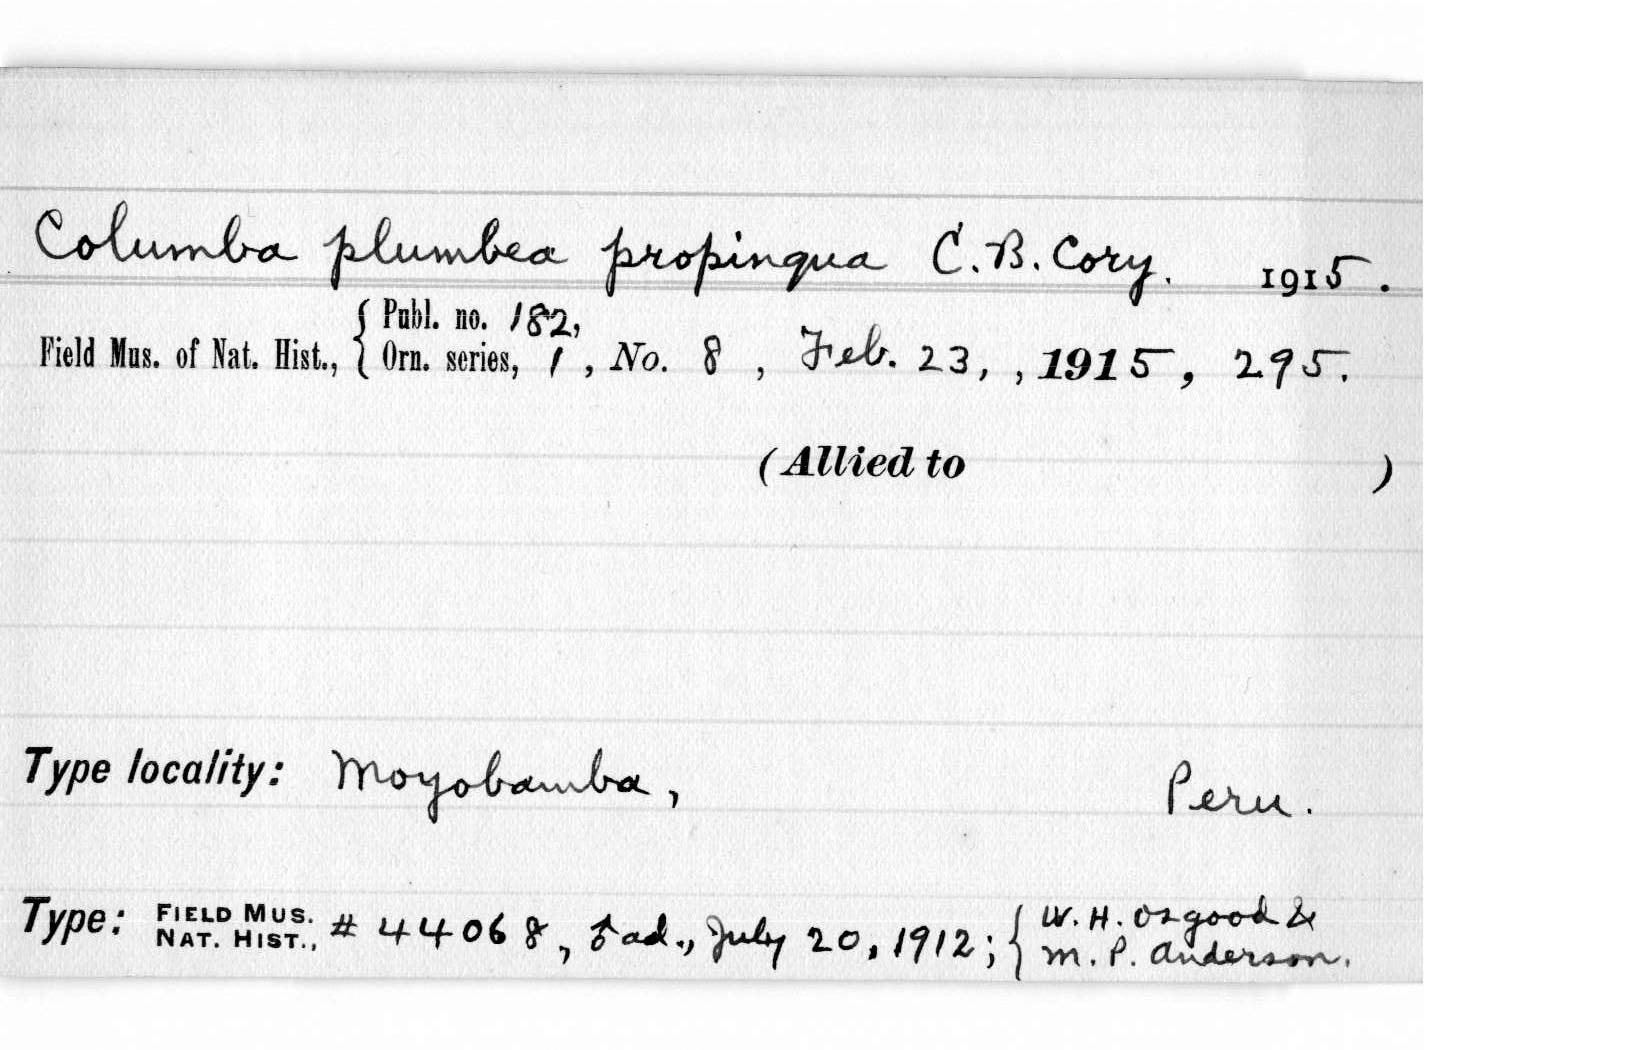 Columba plumbea propinqua C.B. Cory. 1915.
Field Mus. of Nat. Hist., { Publ. no. 182,
Orn. series, 1, No. 8, Feb. 23, , 1915, 295.
(Allied to )
Type locality: Moyobamba, Peru.
Type: FIELD MUS. NAT. HIST., # 44068, ad., July 20, 1912; { W. H. Osgood &
M. P. Anderson.